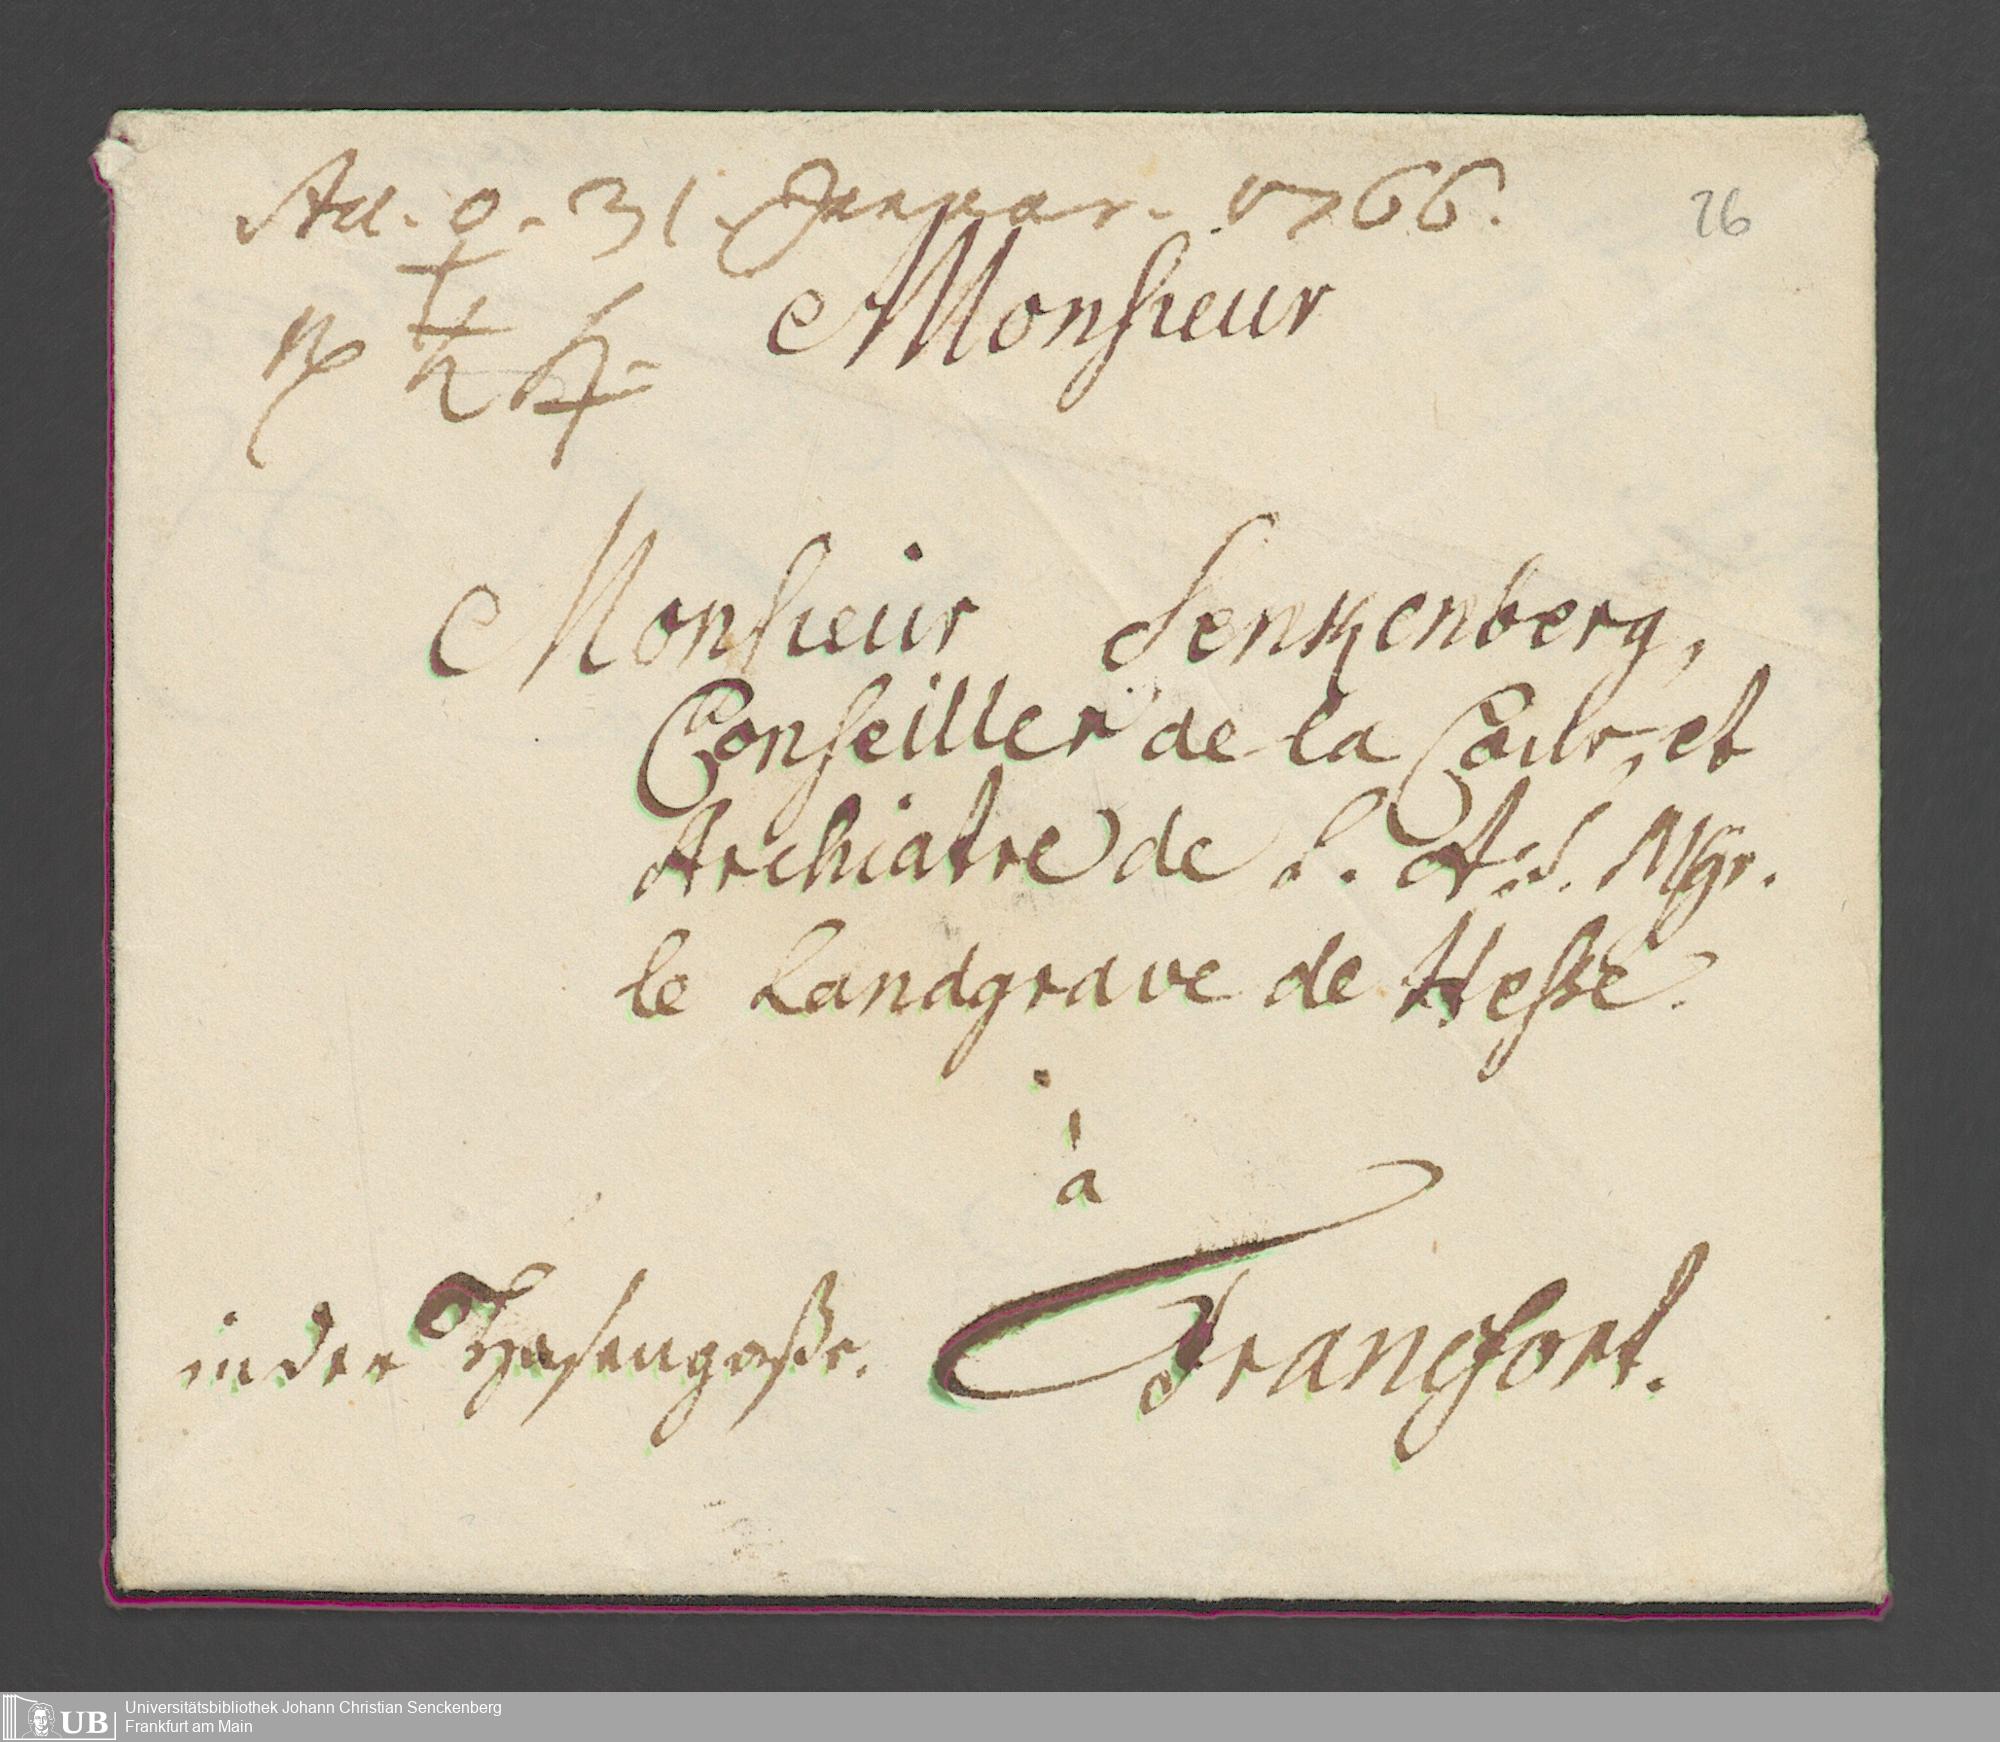 Acc. ♀. 31. Januar. 1766.
26
Monsieur
Monsieur Senkenberg,
Conseiller de la Cour, et
Archiatre de S. A. S. Mgr.
le Landgrave de Hesse.
à
in der Hasengaße. Francfort.
UB
Universitätsbibliothek Johann Christian Senckenberg
Frankfurt am Main